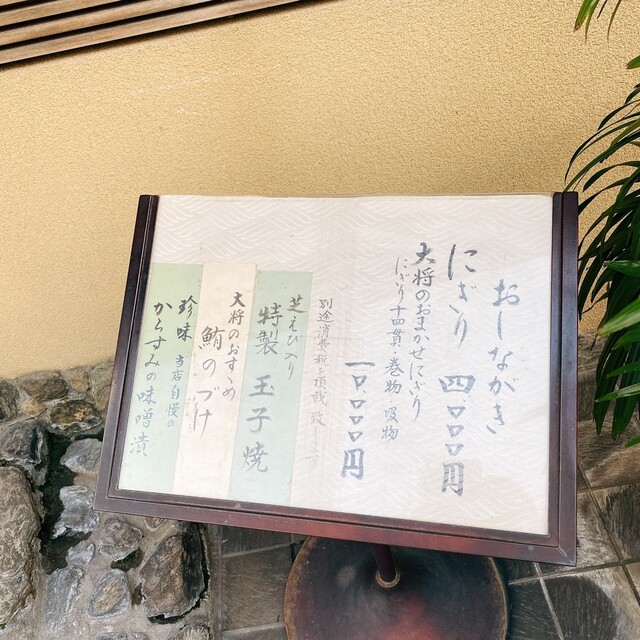 おしながき
にぎり 四〇〇〇円
大将のおまかせにぎり
にぎり十四貫・巻物 吸物
一〇、〇〇〇円
別途消費税を頂戴致し
芝えび入り
特製 玉子焼
大将のおすゝめ
鮪のづけ
珍味 当店自慢の
からすみの味噌漬